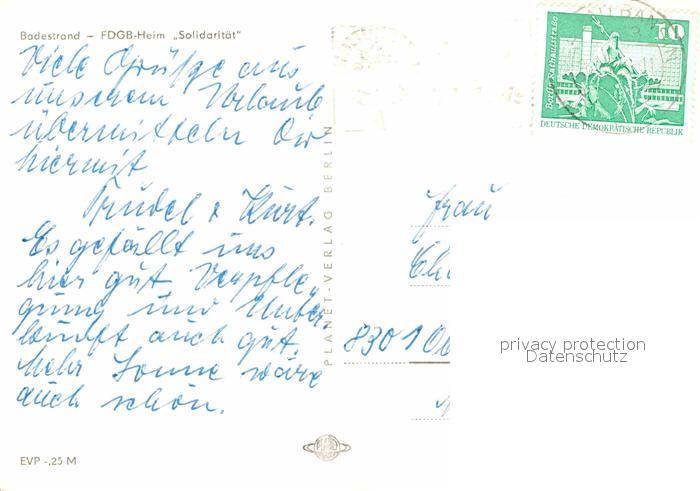 Badestrand – FDGB-Heim „Solidarität"
Viele Grüße aus
unserem Urlaub
übermitteln Dir
hiermit
Trudel + Kurt.
Es gefällt uns
hier gut Verpfle„
gung und Unter
kunft auch gut.
Mehr Sonne wäre
auch schön.
EVP -,25 M
PLANET-VERLAG BERLIN
10
Berlin, Rathausstraße
DEUTSCHE DEMOKRATISCHE REPUBLIK
Frau
8301
privacy protection
Datenschutz